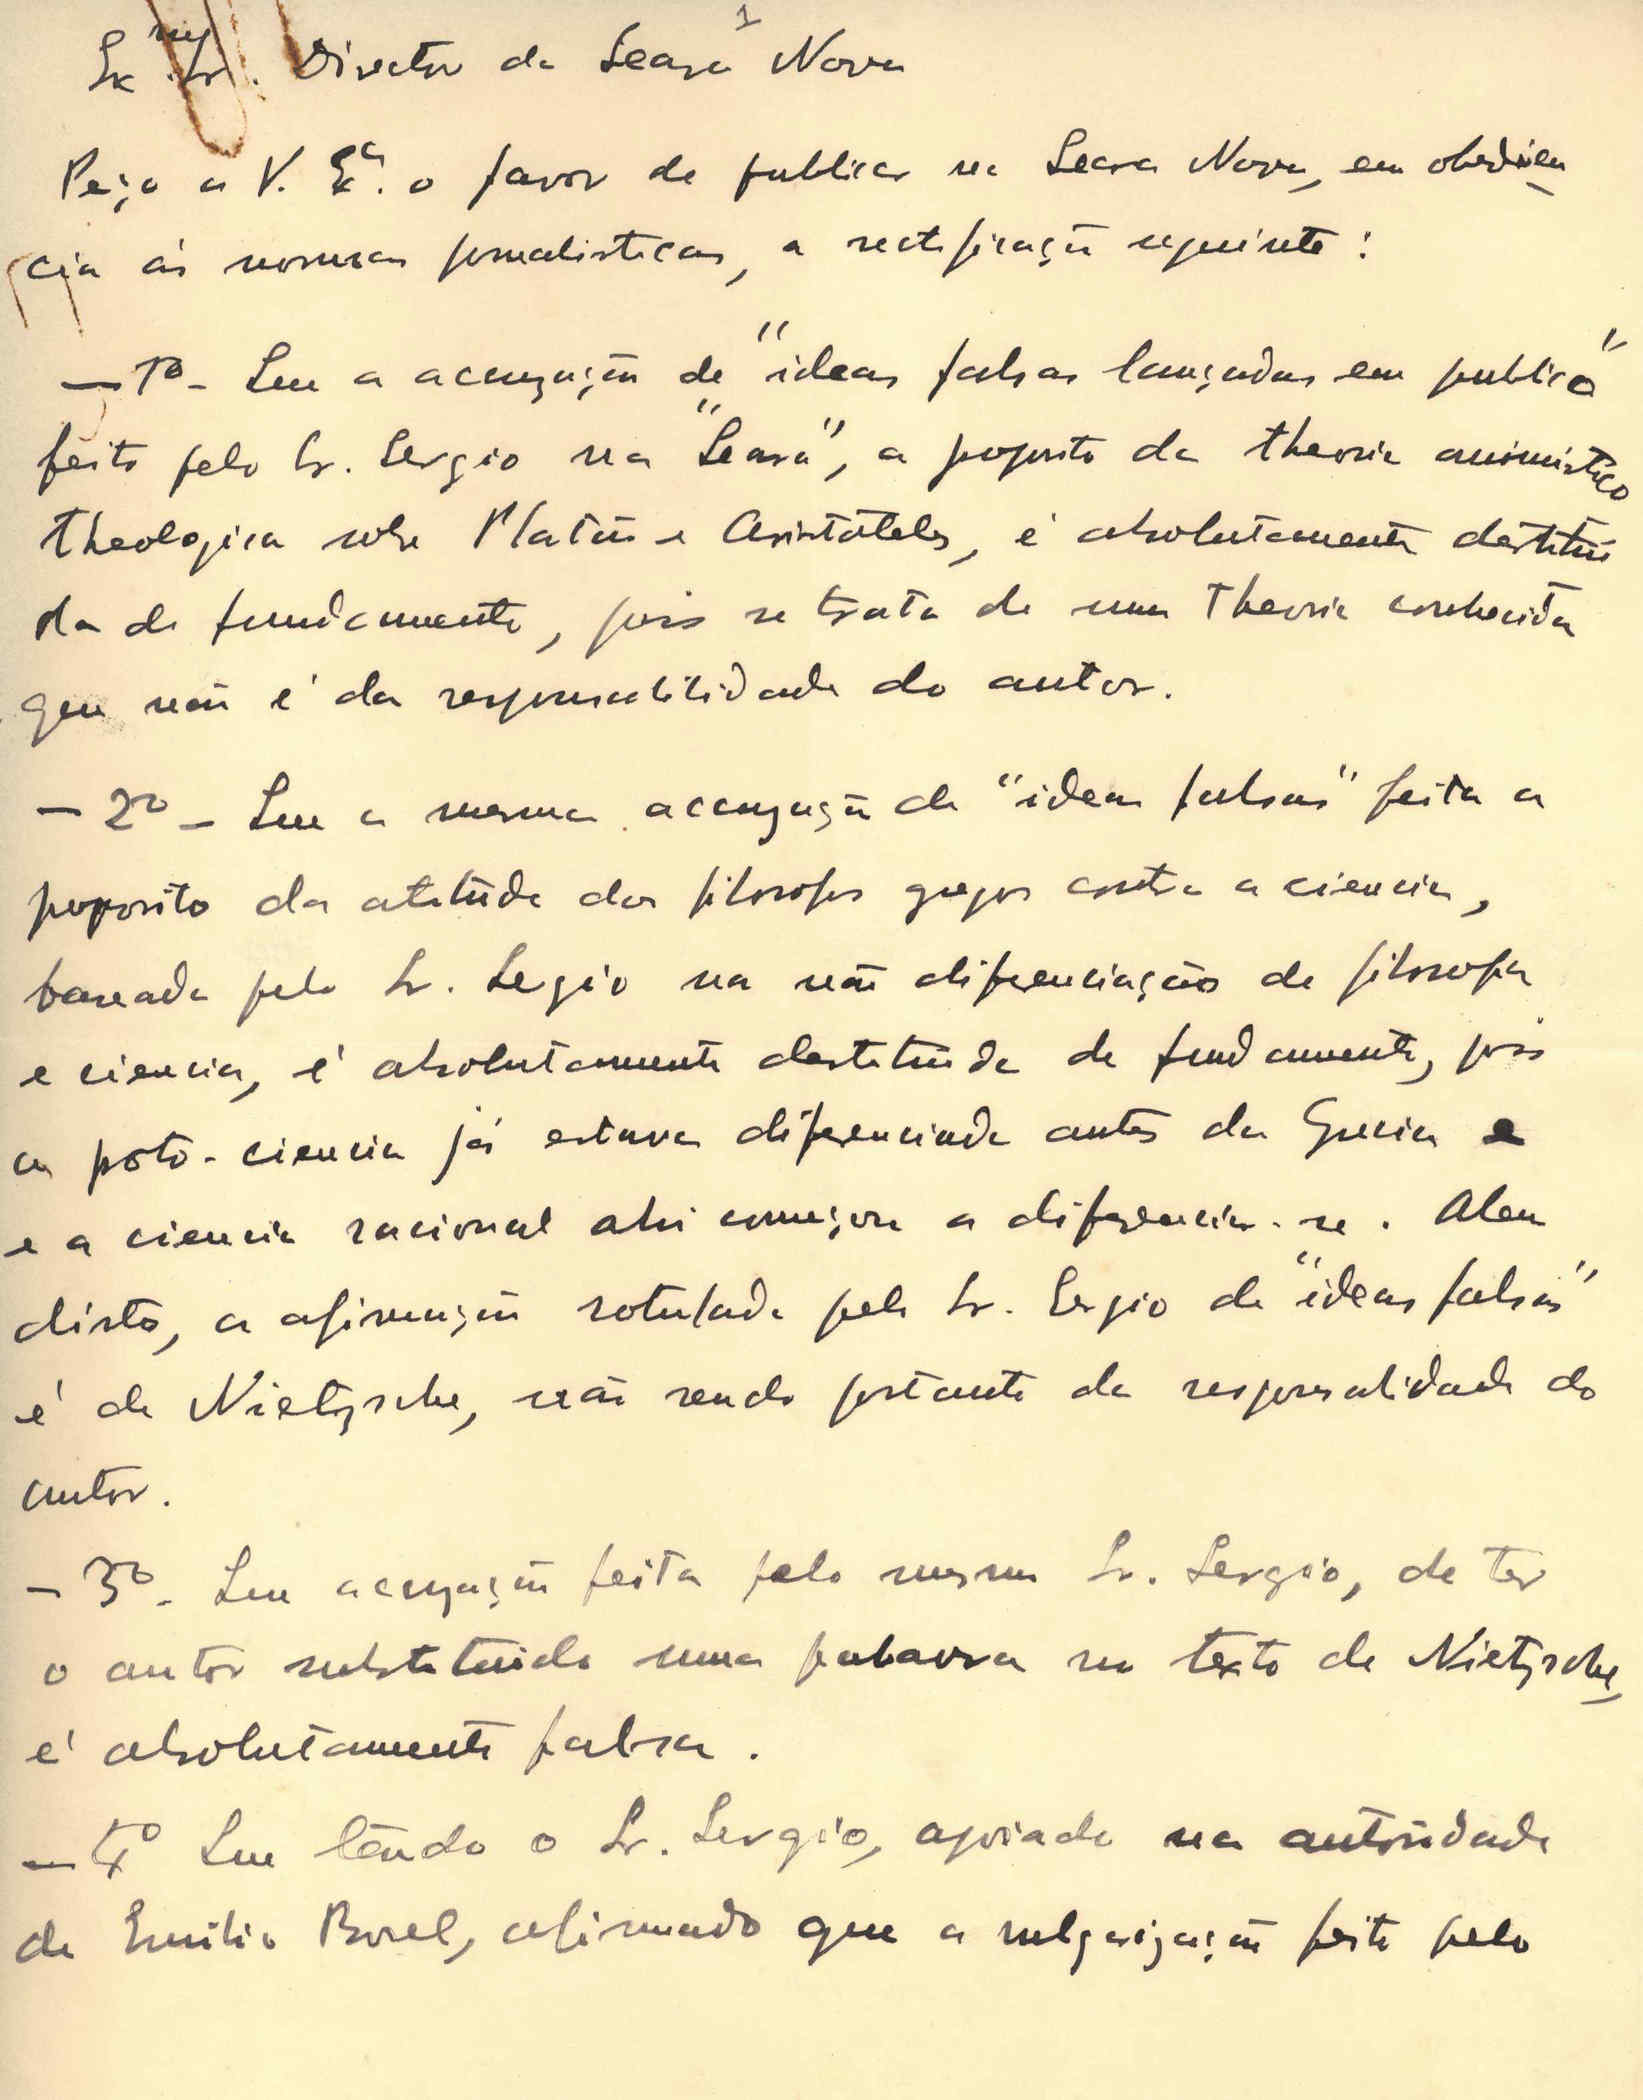 1
Exmo. Sr. Director da Seara Nova
Peço a V. Exª. o favor de publicar na Seara Nova, em obediên
cia ás normas jornalisticas, a rectificação seguinte:
— 1º - Que a acusação de "ideas falsas lançadas em publico"
feita pelo Sr. Sergio na "Seara", a proposito da theoria animistico
theologica sobre Platão e Aristóteles, é absolutamente destitui
da de fundamento, pois se trata de uma theoria conhecida
que não é da responsabilidade do autor.
— 2º - Que a mesma accusação de "ideas falsas" feita a
proposito da atitude dos filosofos gregos contra a ciencia,
baseada pelo Sr. Sergio na não diferenciação de filosofia
e ciencia, é absolutamente destituida de fundamento, pois
a proto-ciencia já estava diferenciada antes da Grecia e
e a ciencia racional ahi começou a diferenciar-se. Alem
disto, a afirmação rotulada pelo Sr. Sergio de "ideas falsas"
é de Nietzsche, não sendo portanto da responsalidade do
autor.
— 3º - Que acusação feita pelo mesmo Sr. Sergio, de ter
o autor substituido uma palavra no texto de Nietzsche,
é absolutamente falsa.
— 4º Que tendo o Sr. Sergio, apoiado na autoridade
de Emilio Borel, afirmado que a vulgarização feita pelo